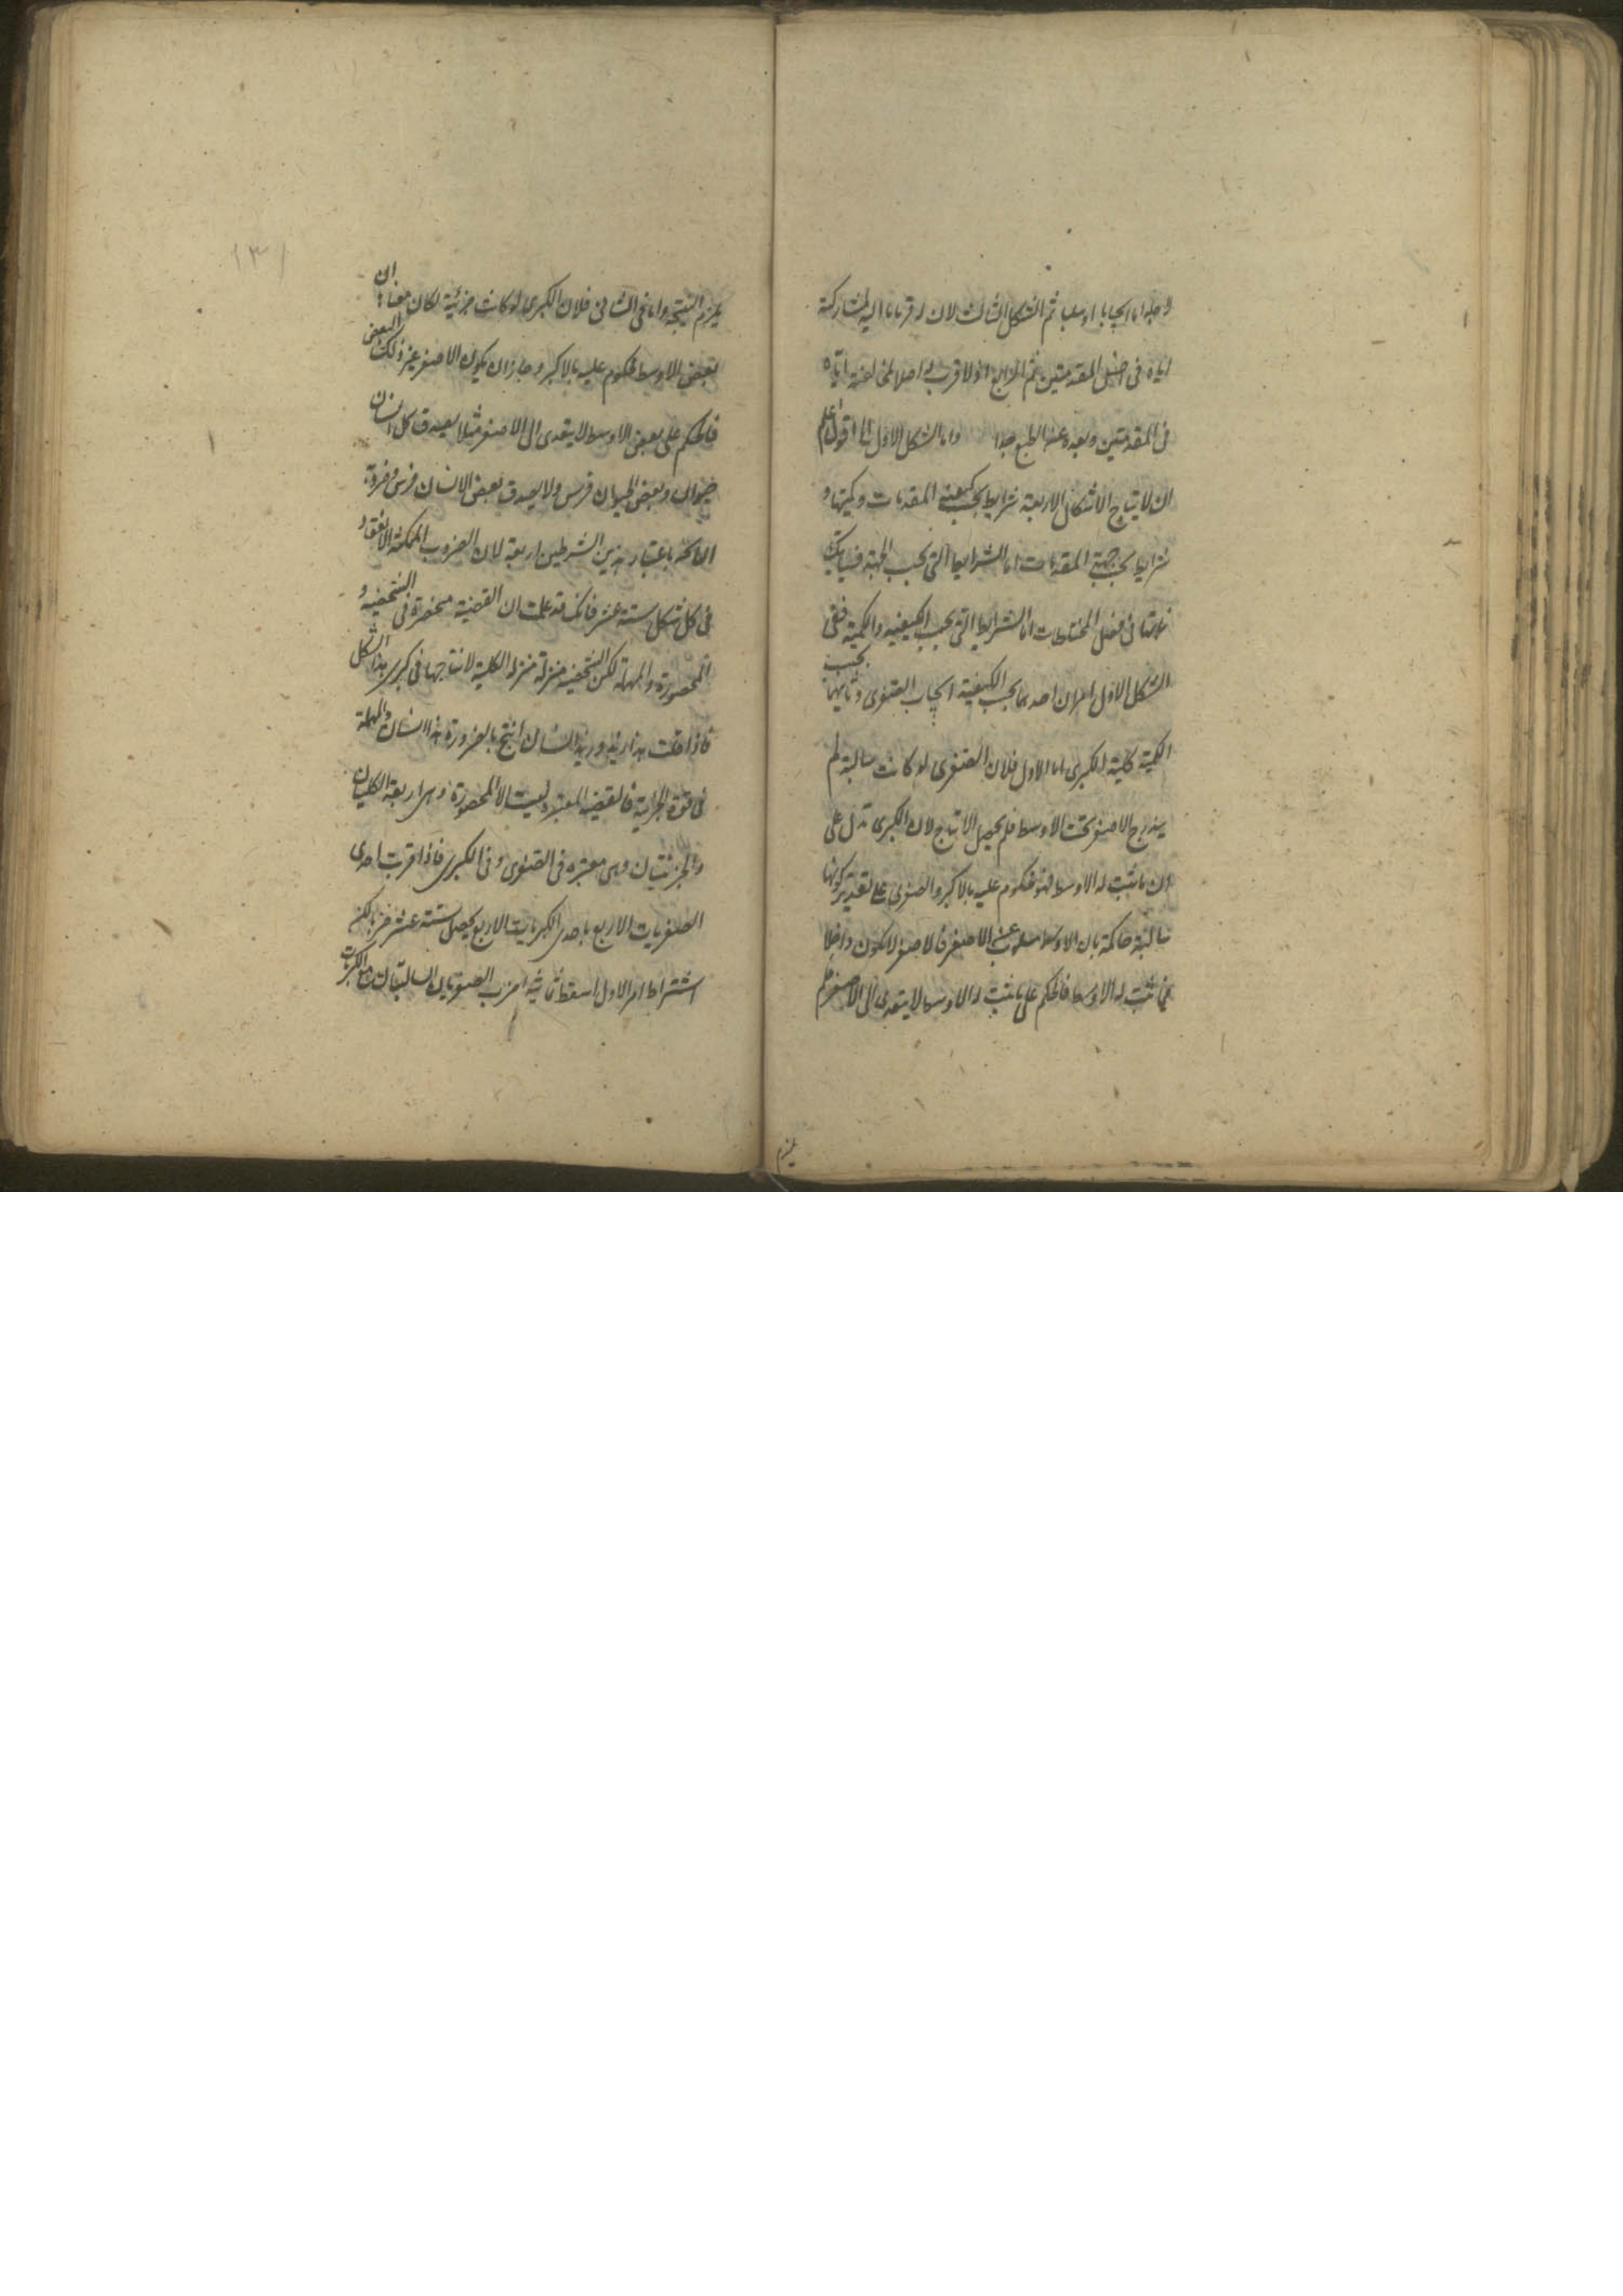 لاجله اما ايجابا او سلبا ثم الشكل الثالث لان له قربا ما اليه لمشاركته
اياه فى اخس المقدمتين ثم الرابع اذ لا قرب له اصلا لمخالفته اياه
فى المقدمتين وبعده عن الطبع جدا واما الشكل الاول الخ اقول اعلم
ان لانتاج الاشكال الاربعة شرايط بحسب كيفية المقدمات وكميتها و
شرايط بحسب جهة المقدمات اما الشرايط التى بحسب الجهة فسياتيك
فى فصل المختلطات اما الشرايط التى بحسب الكيفية والكمية ففى
الشكل الاول امران احدهما بحسب الكيفية ايجاب الصغرى وثانيهما بحسب
الكمية كلية الكبرى اما الاول فلان الصغرى لو كانت سالبة لم
يندرج الاصغر تحت الاوسط فلم يحصل الانتاج لان الكبرى تدل على
ان ما ثبت له الاوسط فهو محكوم عليه بالاكبر والصغرى على تقدير كونها
سالبة حاكمة بان الاوسط مسلوب عن الاصغر فالاصغر لا يكون داخلا
فيما ثبت له الاوسط فالحكم على ما ثبت له الاوسط لا يتعدى الى الاصغر فلم
يلزم
١٣١
يلزم النتيجة واما فى الثانى فلان الكبرى لو كانت جزئية لكان معناها ان
بعض الاوسط محكوم عليه بالاكبر وجاز ان يكون الاصغر غير ذلك البعض
فالحكم على بعض الاوسط لا يتعدى الى الاصغر مثلا يصدق كل انسان
حيوان وبعض الحيوان فرس ولا يصدق بعض الانسان فرس وضروبه
الناتجة باعتبار هذين الشرطين اربعة لان الضروب الممكنة الانعقاد
فى كل شكل ستة عشر فانك قد علمت ان القضية منحصرة فى الشخصية و
المحصورة والمهملة لكن الشخصية منزلة منزلة الكلية لانتاجها فى كبرى هذا الشكل
فاذا قلت هذا زيد وزيد انسان انتج بالضرورة هذا انسان والمهملة
فى قوة الجزئية فالقضية المعتبرة ليست الا المحصورة وهى اربعة الكليتان
والجزئيتان وهى معتبرة فى الصغرى وفى الكبرى فاذا قرنت احدى
الصغريات الاربع باحدى الكبريات الاربع يحصل ستة عشر ضربا لكن
اشتراط امر الاول اسقط ثمانية اضرب الصغريان السالبتان مع الكبريات